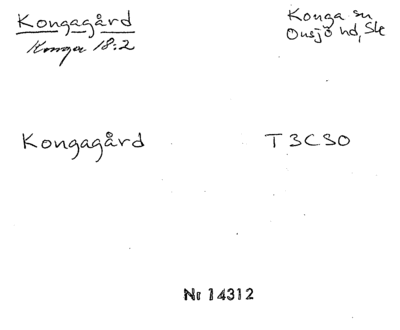 Kongagård
Konga 18:2
Konga sn
Onsjö hd, Ske
Kongagård
T3C30
Nr 14312